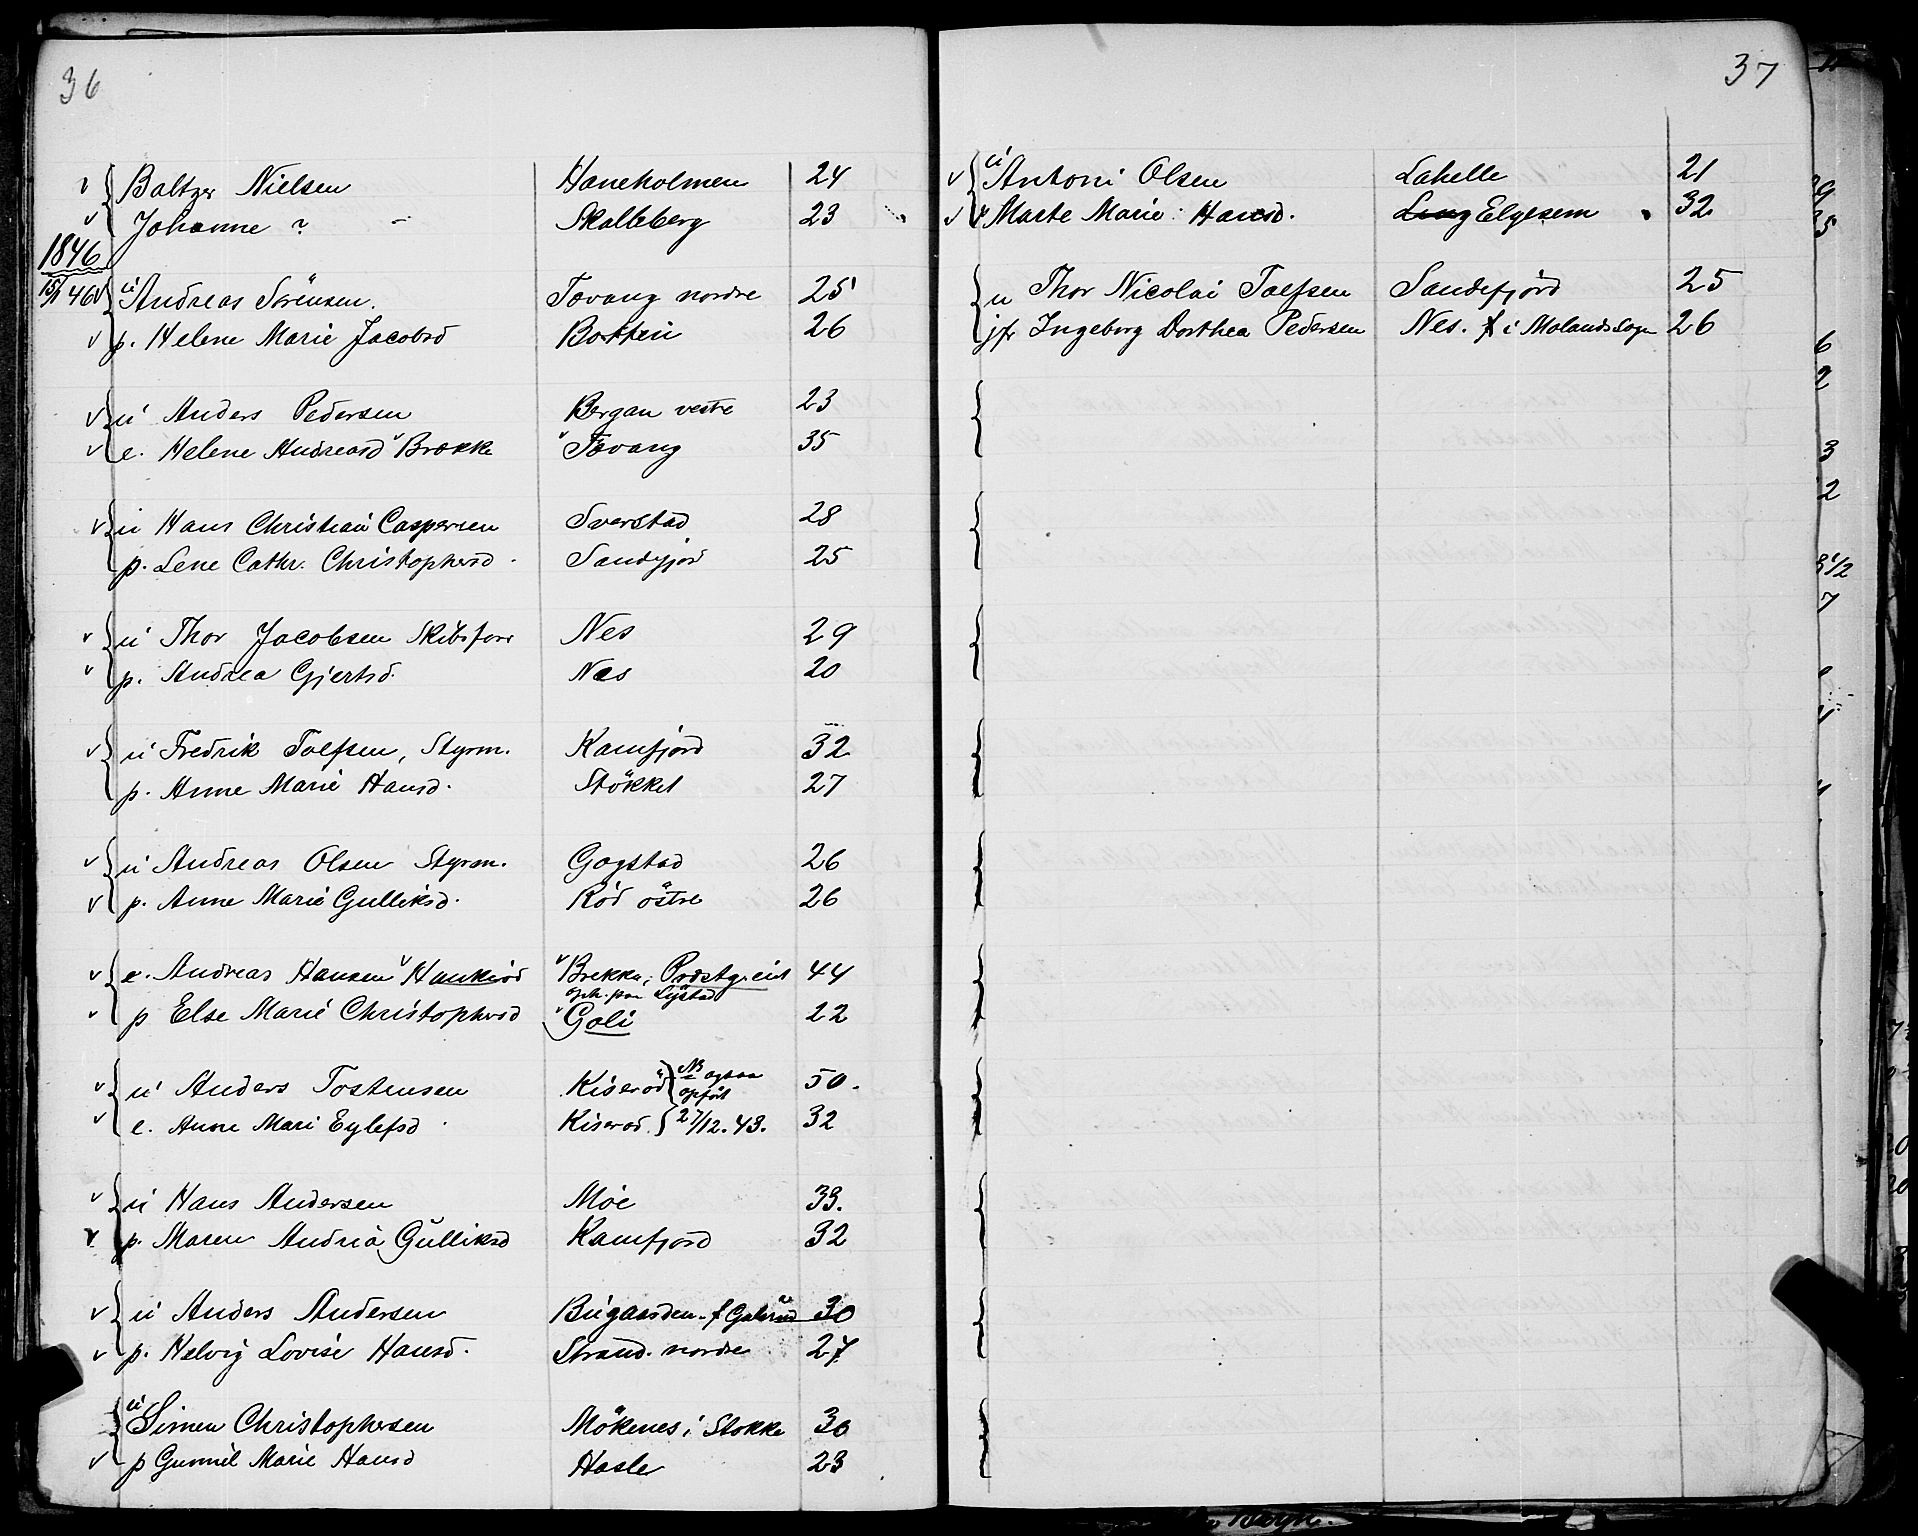 36
Baltzer Nielsen Haneholmen 24
Johanne ? - Skalleberg 23
1846
15/1 46 u Andreas Sörensen. Tovang nordre 25
p. Helene Marie Jacobsd Botten 26
u Anders Pedersen Bergan vestre 23
e. Helene Andreasd Brokke Tovang 35
u Hans Christian Caspersen Sverstad 28
p. Lene Cathr. Christophersd. Sandefjord 25
u Thor Jacobsen Skibsfører Nes 29
p. Andrea Gjertsd. Nes 20
u Fredrik Tolfsen, Styrm. Kamfjord 32
p. Anne Marie Hansd. Stökket 27
u Andreas Olsen Styrm. Gogstad 26
p. Anne Marie Gulliksd. Röd östre 26
e. Andreas Hansen Haukiöd Brekke, 44
oph. paa
p Else Marie Christophersd Goli 22
u Anders Tostensen Kiseröd NB ogsaa opført 50.
e. Anne Mari Eylefsd Kiseröd. 27/12.43. 32
u Hans Andersen Moe 33.
p. Maren Andrea Gulliksd Kamfjord 32
u Anders Andersen Bugaarden. f 30
p. Helvig Lovise Hansd. Strand. nordre 27
u Simen Christophersen Mökenes i Stokke 30
p Gunnil Marie Hansd Hasle 23
37
u Antoni Olsen Lahelle 21
Marte Marie Hansd. Elgesem 32
u Thor Nicolai Tolfsen Sandefjord 25
jfr Ingeborg Dorthea Pedersen Nes. f i Molands Sogn 26